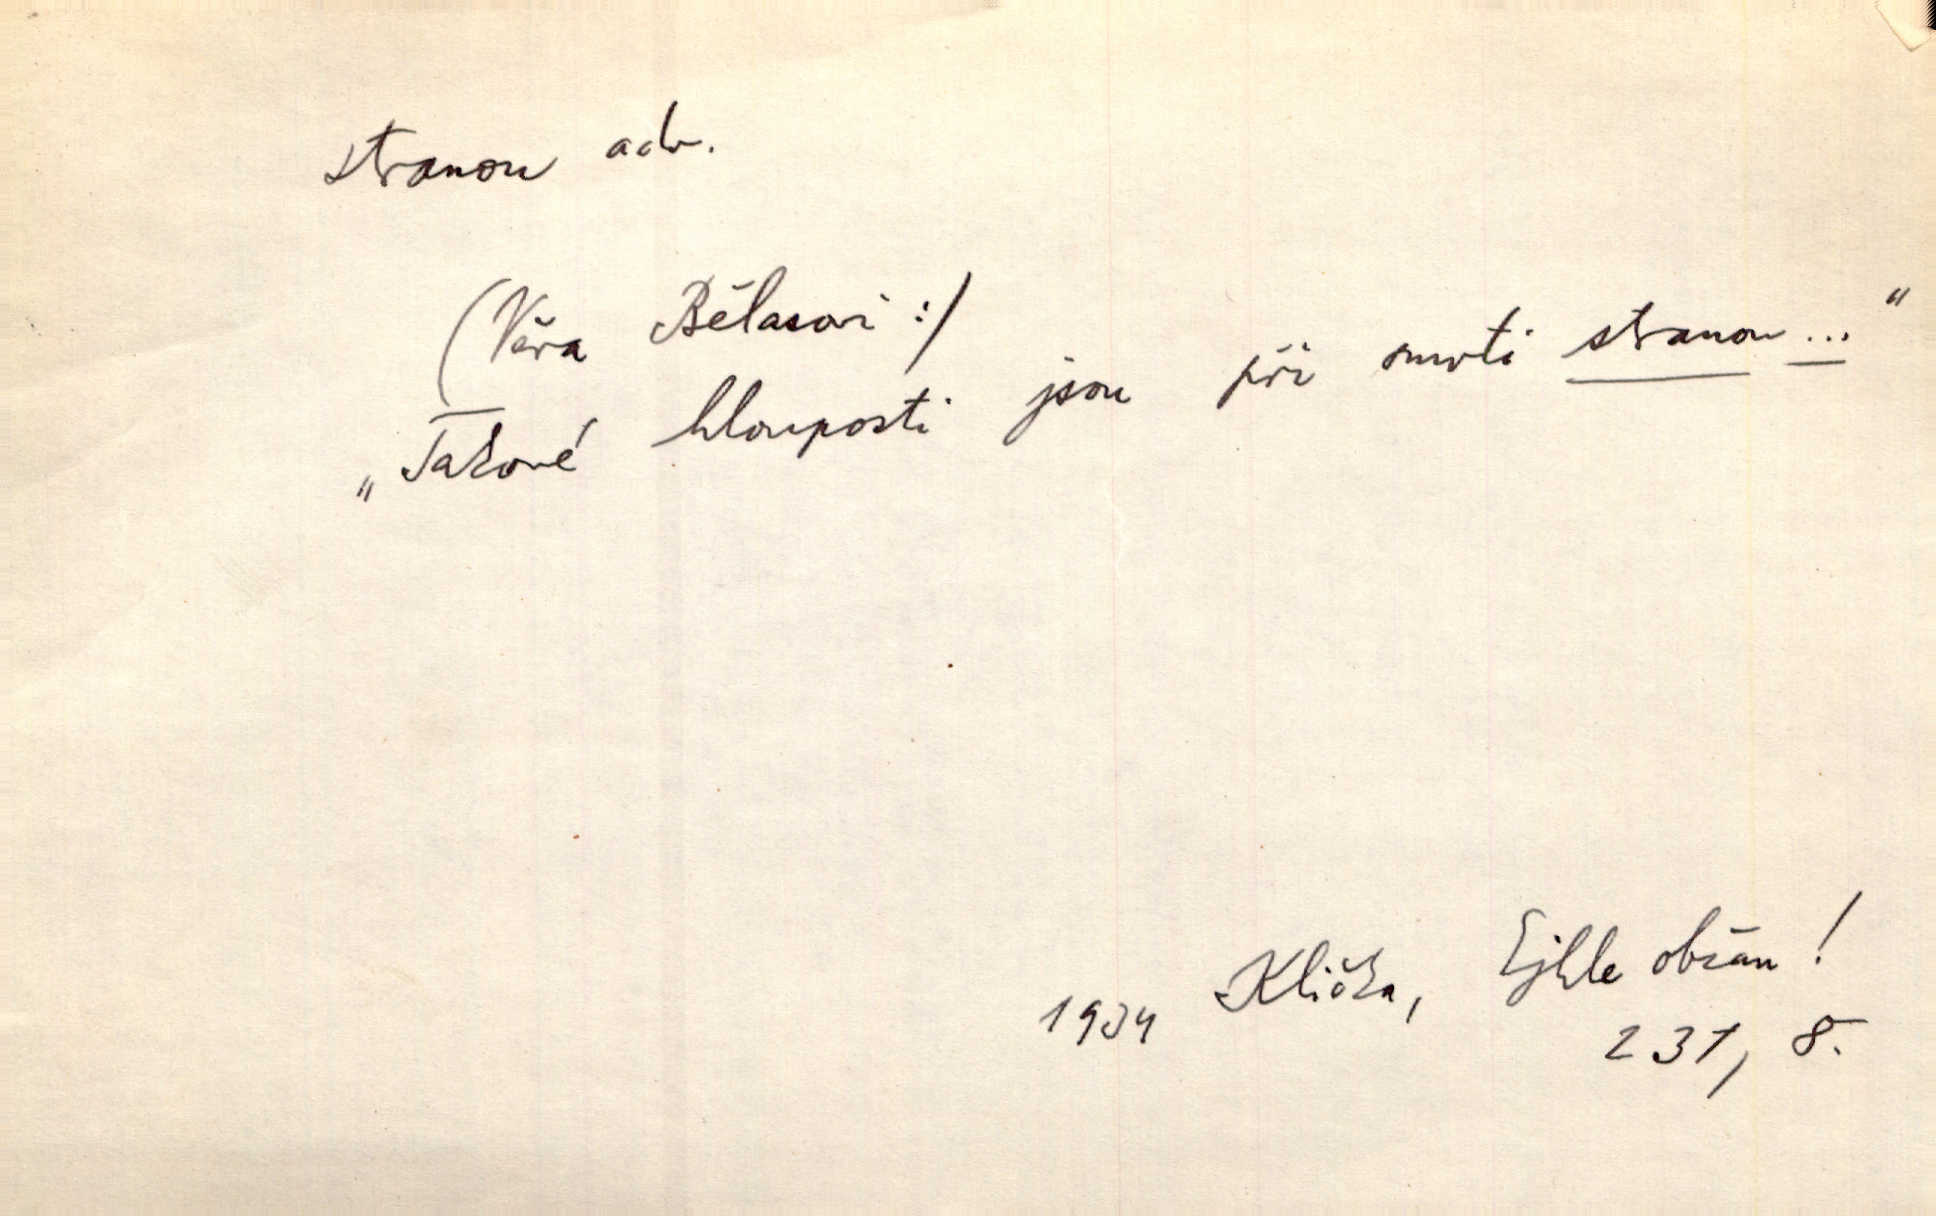 stranou adv.
(Věra Bělasovi:)
„Takové hlouposti jsou při smrti stranou..."
1934 Klička, Ejhle občan!
231, 8.